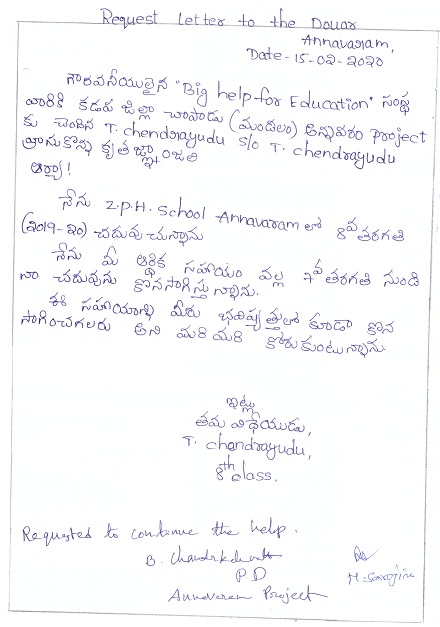 Request Letter to the Douar
Annavaram,
Date-15-02-2020
గౌరవనీయులైన "Big help for Education" సంస్థ
వారికి కడప జిల్లా చాపాడు (మండలం) అన్నవరం project
కు చెందిన T. chendrayudu S/o T. chendrayudu
వ్రాసుకొన్న కృతజ్ఞాంజలి
ఆర్యా!
నేను Z.P.H. School Annavaram లో 8వ తరగతి
(2019-20) చదువుచున్నాను
నేను మీ ఆర్థిక సహాయం వల్ల 7వ తరగతి నుండి
నా చదువును కొనసాగిస్తున్నాను.
ఈ సహాయాన్ని మీరు భవిష్యత్తులో కూడా కొన
సాగించగలరు అని మరి మరి కోరుకుంటున్నాను
ఇట్లు
తమ విధేయుడు,
T. chandrayudu,
8th class.
Requested to continue the help.
B.
P.D
Annavaram Project
M. Sarojini